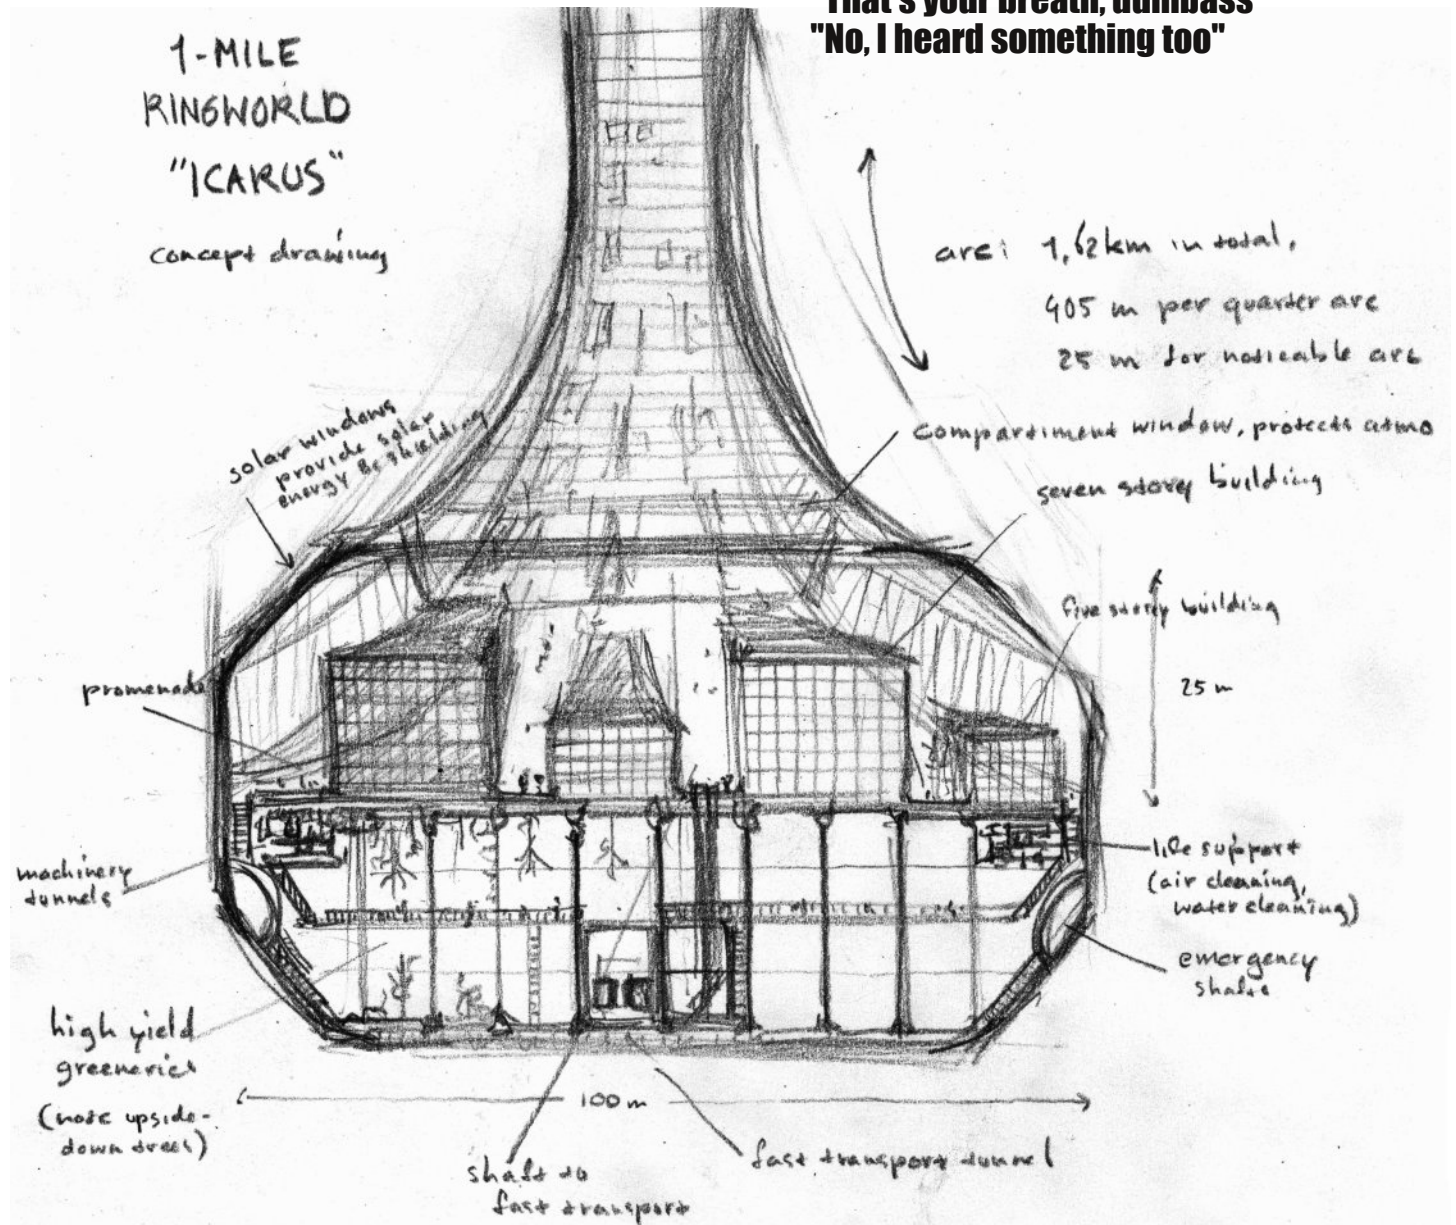 "That's your breath, dumbass"
"No, I heard something too"
1-MILE
RINGWORLD
"ICARUS"
concept drawing
arc: 1,62km in total,
405 m per quarter arc
25 m for noticable arc
solar windows
provide solar
energy & shielding
compartiment window, protects atmo
seven story building
five story building
25 m
promenade
machinery
tunnels
life support
(air cleaning,
water cleaning)
emergency
shafts
high yield
greeneries
(note upside-
down trees)
100 m
shaft to
fast transport
fast transport tunnel